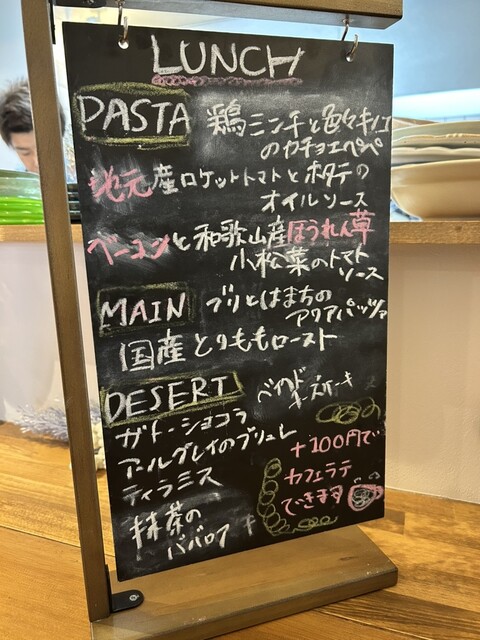 LUNCH
PASTA 鶏ミンチと色々キノコ
のカチョエペペ
地元産ロケットトマトとホタテの
オイルソース
ベーコンと和歌山産ほうれん草
小松菜のトマト
ソース
MAIN ブリとはまちの
アクアパッツァ
国産とりももロースト
DESERT ベイクド
チーズケーキ
ガトーショコラ
アールグレイのブリュレ
ティラミス
抹茶の
ババロア
+100円で
カフェラテ
できます